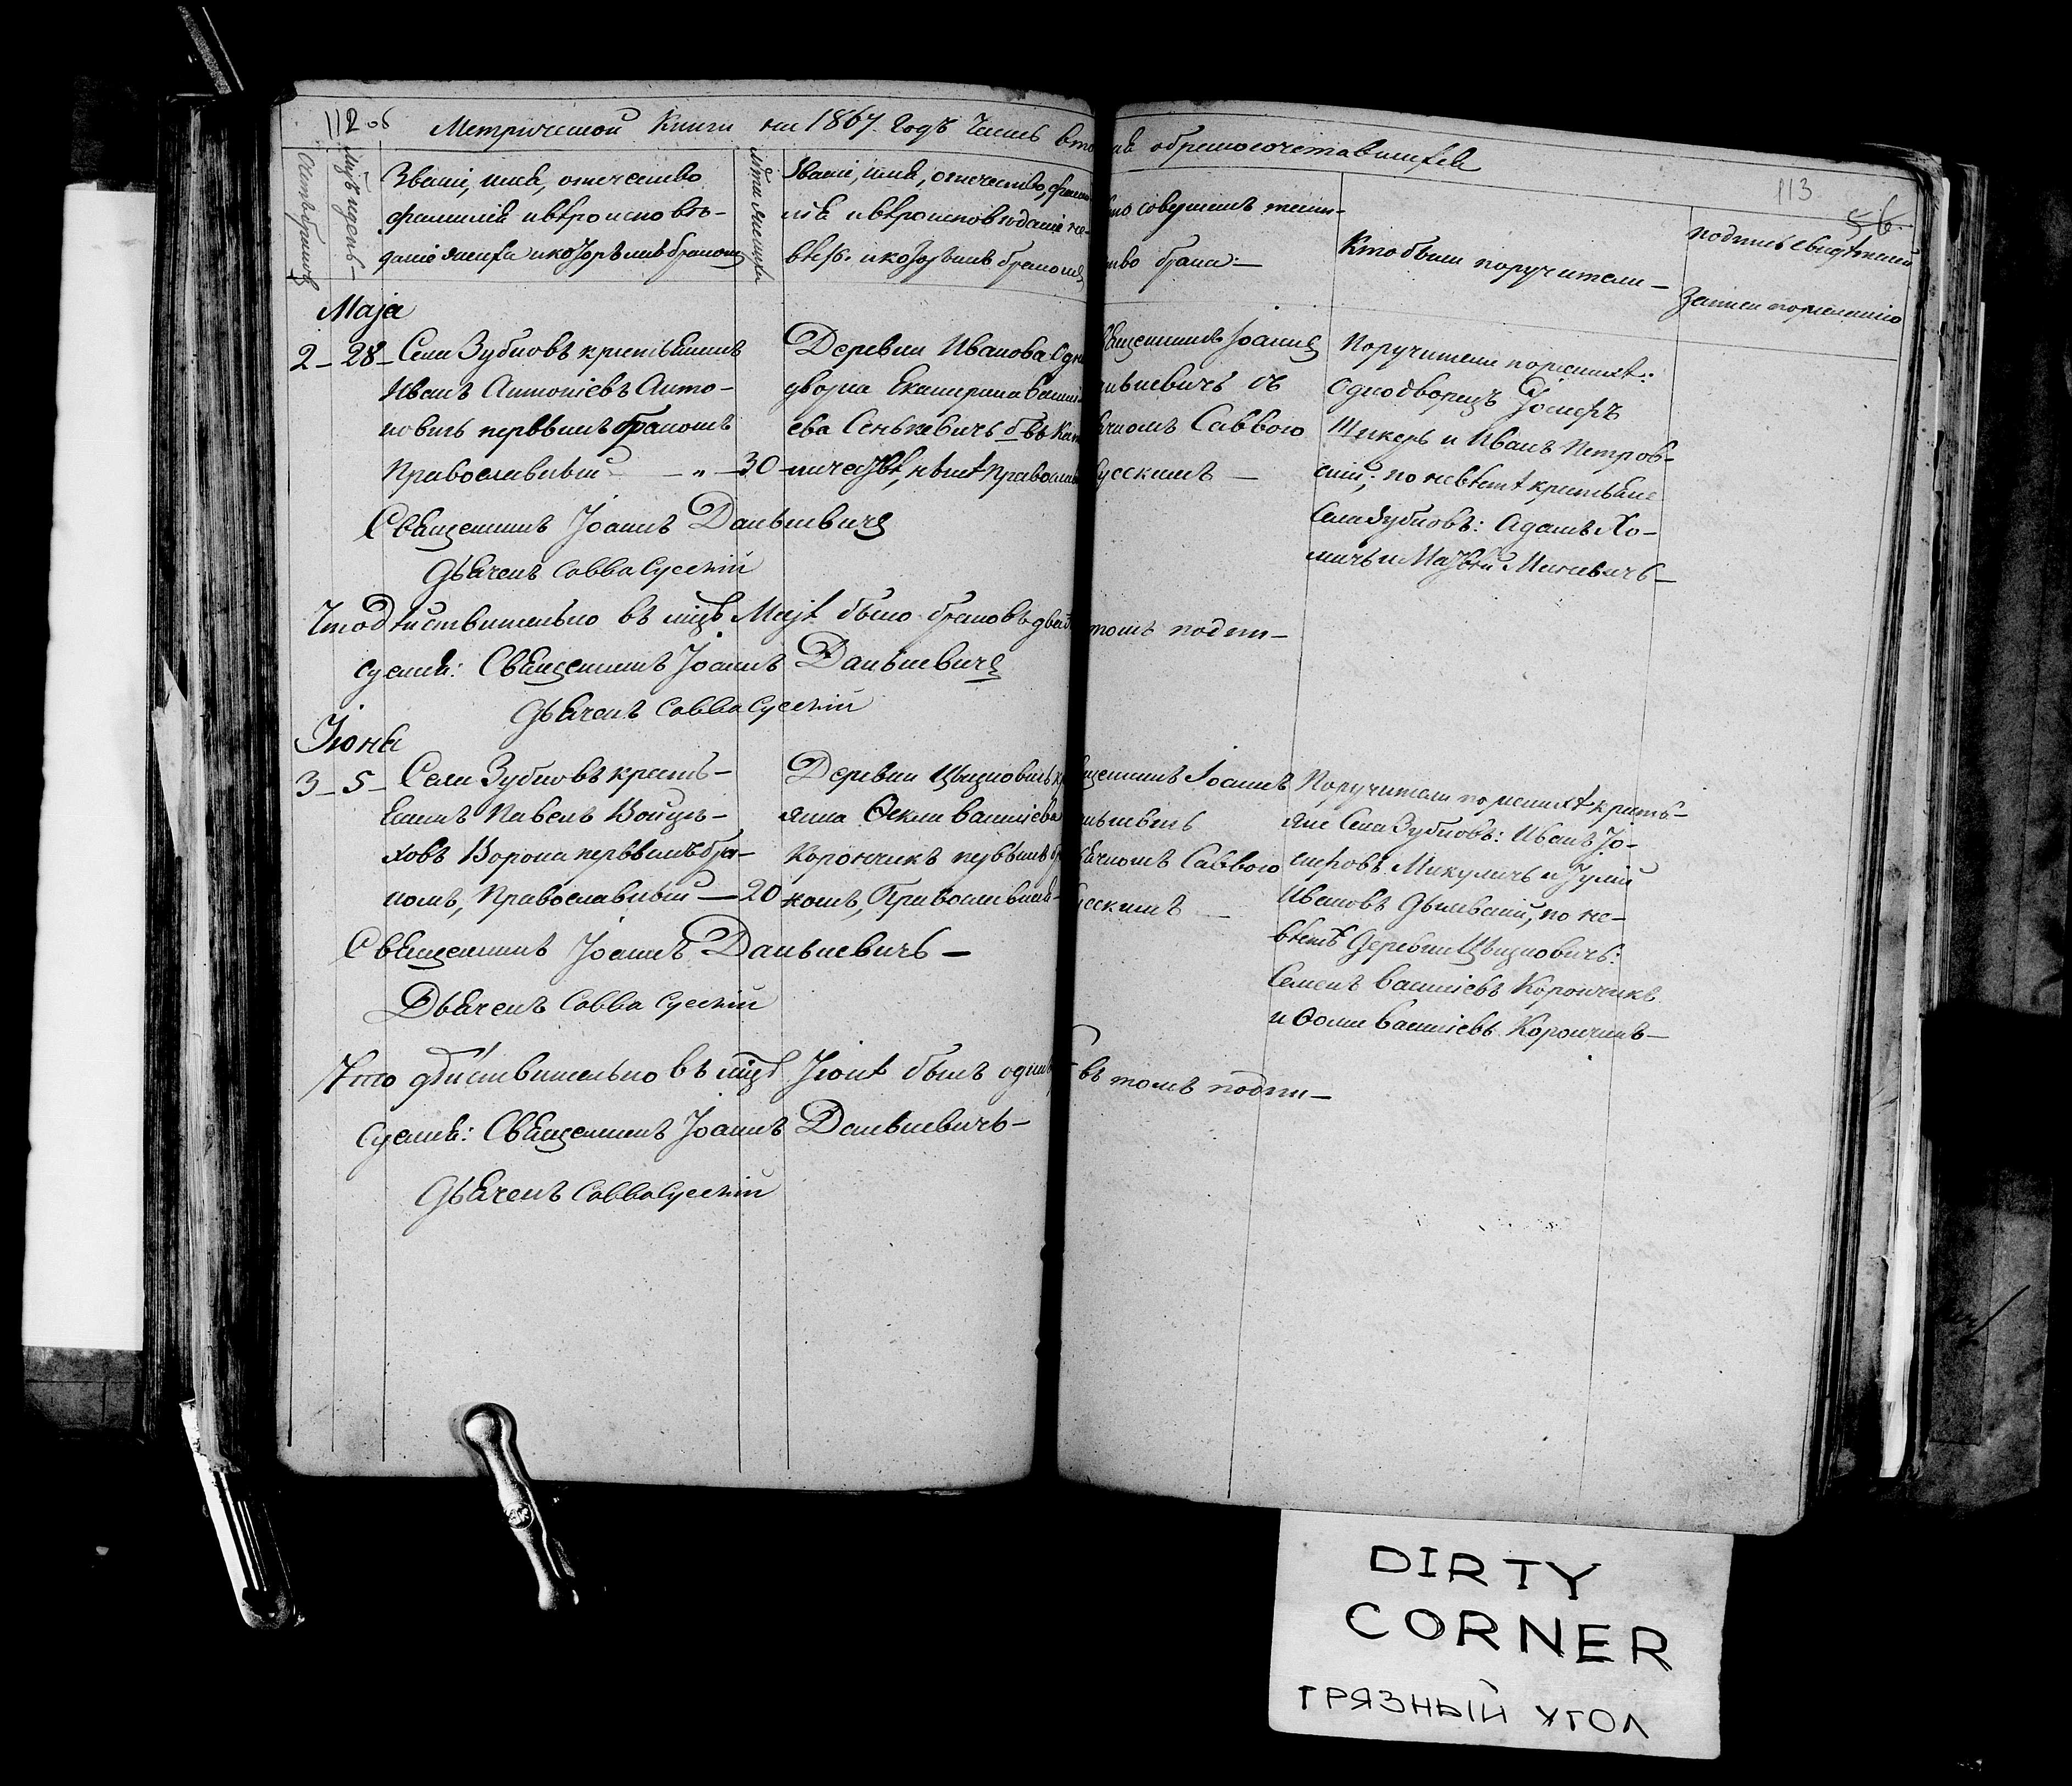 112 об
Метрической Книги на 1867 Годъ Часть вторая о бракосочетавшихся
113
56
Счетъ браковъ
Мѣсяцъ и день
Званіе, имя, отчество
фамилія и вѣроисповѣ-
даніе жениха и которымъ бракомъ
Лѣта жениха
Званіе, имя, отчество, фами
лія и вѣроисповѣданіе не-
вѣсты и которымъ бракомъ
Кто совершалъ таин-
ство брака:—
Кто были поручители—
подпись свидѣтелей
записи по желанію
Маја
2 — 28 — Села Зубковъ крестьянинъ
Иванъ Антоніевъ Анто-
новичь первымъ бракомъ
Православный — " — 30
Деревни Иванова Одно
дворка Екатерина Василі
ева Сенькевичь бывъ Като
личествѣ, нынѣ Православ
Священникъ Іоаннъ
съ
Саввою
усскимъ —
Поручители по женихѣ:
Однодворецъ Іосифъ
и Иванъ Петров-
скій; по невѣстѣ крестьяне
Села Зубковъ: Адамъ Хо-
мичь и Матвѣй Миневичь —
Священникъ Іоаннъ Данькевичъ
Дьячекъ Савва Сусскій
Что дѣйствительно въ мцѣ Маіѣ было браковъ два въ томъ подпи-
суемся: Священникъ Іоаннъ Данькевичъ
Дьячекъ Савва Сусскій
Іюня
3 — 5 — Села Зубковъ кресть-
янинъ Павелъ Войце-
ховъ Ворона первымъ бра-
комъ, Православный — 20
Деревни Цвизновичь кр
янка Ѳекла Василіева
Корончикъ первымъ бра
комъ, Православная —
щенникъ Іоаннъ
нькевичь
ьячкомъ Саввою
сскимъ —
Поручители по женихѣ кресть-
яне Села Зубковъ: Иванъ Іо-
сифовъ Микуличь и Іулій
Ивановъ Дылевскій, по не-
вѣстѣ Деревни Цвизновичь:
Семенъ Василіевъ Корончикъ
и Ѳома Василіевъ Корончикъ —
Священникъ Іоаннъ Данькевичъ —
Дьячекъ Савва Сусскій
Что дѣйствительно въ мцѣ Іюнѣ былъ одинъ въ томъ подпи —
суемся: Священникъ Іоаннъ Данькевичъ —
Дьячекъ Савва Сусскій
DIRTY
CORNER
ГРЯЗНЫЙ УГОЛ